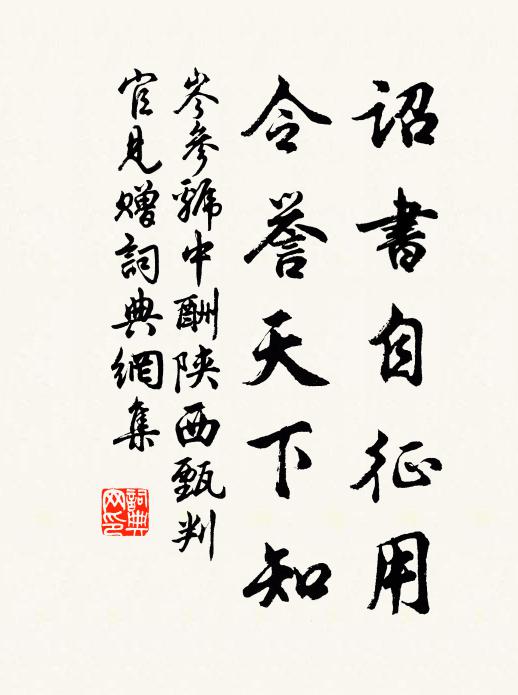 詔書自征用
令譽天下知
岑參虢中酬陝西甄判
官見贈詞典網集
詞典网印